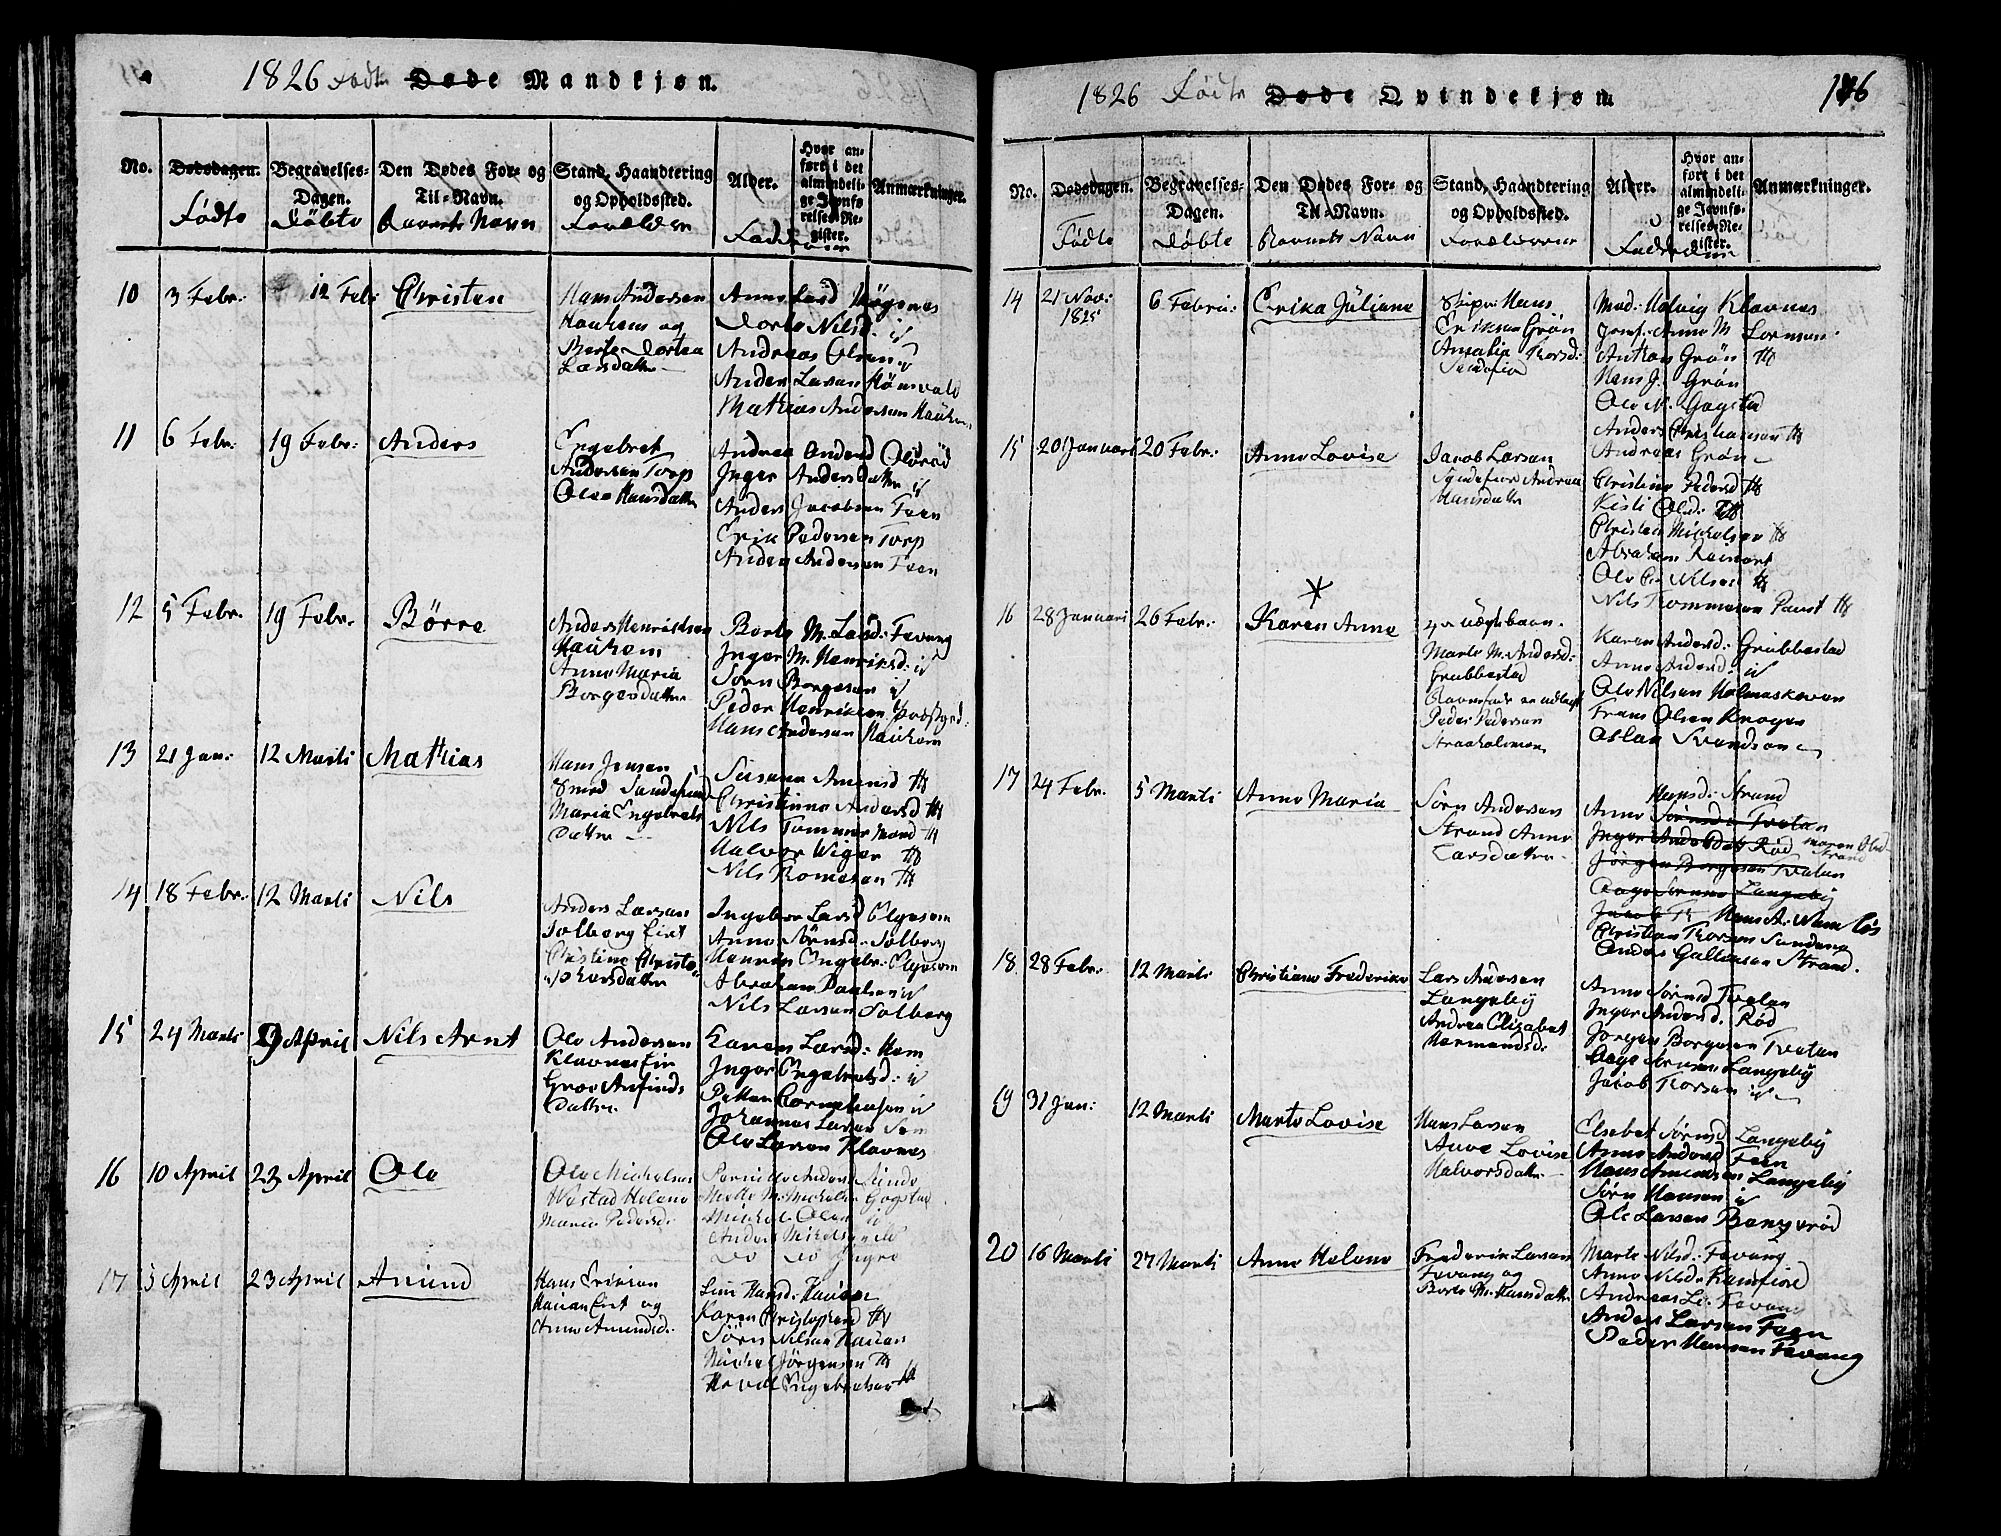 1826 Fødte Døde Mandkjøn.
No.
Dødsdagen.
Fødte
Begravelses-
Dagen.
Døbte
Den Dødes For- og
Til-Navn.
Barnets Navn
Stand, Haandtering
og Opholdssted.
Forældre
Alder.
Faddere
Hvor an-
ført i det
almindeli-
ge Jevnfø-
relses-Re-
gister.
Anmærkninger.
10 3 Febr: 12 Feb: Christen
Hans Andersen
Haukem og
Berte Dortea
Larsdatter
Anne Larsd
Dorte Nilsd: id
Andreas Olsen id
Anders Larsen
Mathias Andersen Haukem
11 6 Febr. 19 Febr: Anders
Engebret
Andersen Torp
Olea Hansdatter
Andrea Andersd Olsrød
Inger Andersdatter id
Anders Jacobsen Feen
Erik Pedersen Torp
Anders Andersen Feen
12 5 Febr. 19 Febr. Børre
Anders Henriksen
Haukem
Anne Maria
Borgersdatter
Berte M. Larsd: Fevang
Inger M. Henriksd: id
Sørn Borgesen id
Peder Henriksen
Hans Andersen Haukem
13 21 Jan: 12 Marti Mathias
Hans Jensen
Smed Sandefiord
Maria Engebrets
Datter
Susane Amunsd
Christianne Andersd
Nils Tømmermand
Halvor Wiger
Nils Tomesen
14 18 Febr. 12 Marti Nils
Anders Larsen
Solberg Eiet
Christine Christo-
phersdatter
Ingebor Larsd
Anne Sørnsd Solberg
Henrik Engebr:
Abraham Paulsen id
Nils Larsen Solberg
15 24 Marti 9 April Nils Arnt
Ole Andersen
Klavnes Eie
Groe Anfinds
Datter
Karen Larsd: Hem
Inger Engebretsd: id
Petter Corneliusen id
Johannes Larsen
Ole Larsen Klavnes
16 10 April 23 April Ole
Ole Michelsen
Wæstad Helene
Marie Pedersd:
Pernille Andersd
Mette M. Michelsd Gogstad
Michel Olsen id
Anders Mikelsen
Do Do Yngre
17 5 April 23 April Amund
Hans Eriksen
Hauan Eiet og
Anne Amundsd.
Siri Hansd:
Karen Christophersd
Sørn Nilsen Hauan
Michel Jørgensen
Engebretsen
1826 Fødte Døde Qvindekjøn 186
No.
Dødsdagen.
Fødte
Begravelses-
Dagen.
Døbte
Den Dødes For- og
Til-Navn.
Barnets Navn
Stand, Haandtering
og Opholdssted.
Forældrene
Alder.
Fadderne
Hvor an-
ført i det
almindeli-
ge Jevnfø-
relses-Re-
gister.
Anmærkninger.
14 21 Nov: 6 Febru: Erika Juliane
1825
Skipr: Hans
Eriksen Grøn
Amalia Thorsd:
Sandefiord
Mad: Hedvig Klavnes
Jomf: Anne M.
Anthon Grøn
Hans J. Grøn
Ole N. Gogstad
Anders Christiansen
Andreas Grøn
15 20 Januari 20 Febr: Anne Lovise
Jacob Larsen
Sandefior Andrea
Hansdatter
Christine Pedersd
Kisti Olsd:
Christen Mickelsen
Abraham Reinert
Ole Chr Nilsen
Nils Thommesen
16 28 Januari 26 Febr: Karen Anne
uægte barn.
Marte M. Andersd:
Grubbestad
Barnefader er udlagt
Peder Pedersen
Straaholmen
Karen Andersd: Grubbestad
Anne Andersd id
Ole Nilsen Holmaskeven
Frans Olsen Krogen
Aslak Svendsen
17 24 Febr. 5 Marti Anne Maria
Sørn Andersen
Strand Anne
Larsdatter
Hansd: Strand
Anne Sørnsd Tvetan
Inger Andersdat Rød Maren Olsd
Strand
Jørgen Borgesen Tvetan
Aage Sørnsen Langeby
Jacob Th Hans A:
Christian Thorsen
Anders Gulliksen Strand.
18 28 Febr. 12 Marti Christiane Frederikke
Lars Andersen
Langeby
Andrea Elizabet
Hermandsd:
Anne Sørnsd Tvetan
Inger Andersd. Rød
Jørgen Borgesen Tvetan
Aage Sørnsen Langeby
Jacob Thorsen id
19 31 Jan: 12 Marti Marte Lovise
Hans Larsen
Anne Lovise
Halvorsdatter
Elsebet Sørnsd Langeby
Anne Andersd Feen
Hans Amundsen Langeby
Sørn Hansen id
Ole Larsen
20 16 Marti 27 Marti Anne Helene
Frederik Larsen
Fevang og
Berte M. Hansdatter
Marte Nilsd: Fevang
Anne Nilsd: Kamfiord
Andreas L: Fevang
Anders Larsen Feen
Peder Hansen Fevang